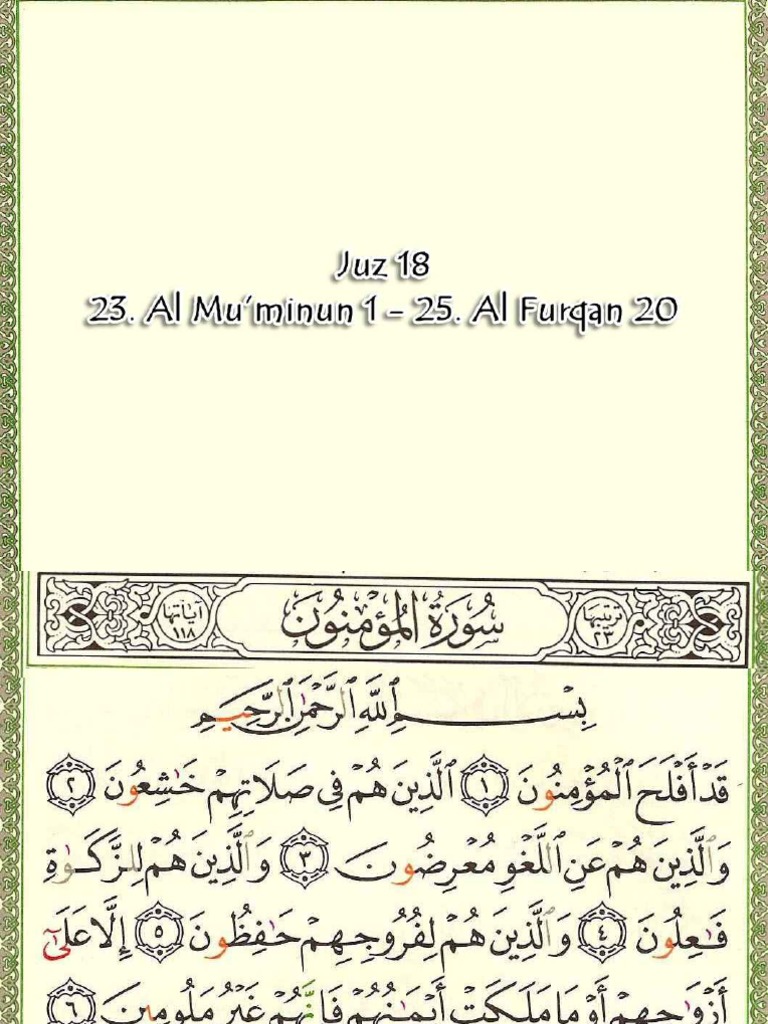 Juz 18
23. Al Mu'minun 1 - 25. Al Furqan 20
ترتيبها ٢٣ سُورَةُ المُؤْمِنُون آياتها ١١٨
بِسْمِ ٱللَّهِ ٱلرَّحْمَٰنِ ٱلرَّحِيمِ
قَدْ أَفْلَحَ ٱلْمُؤْمِنُونَ ١ ٱلَّذِينَ هُمْ فِى صَلَاتِهِمْ خَٰشِعُونَ ٢
وَٱلَّذِينَ هُمْ عَنِ ٱللَّغْوِ مُعْرِضُونَ ٣ وَٱلَّذِينَ هُمْ لِلزَّكَوٰةِ
فَٰعِلُونَ ٤ وَٱلَّذِينَ هُمْ لِفُرُوجِهِمْ حَٰفِظُونَ ٥ إِلَّا عَلَىٰٓ
أَزْوَٰجِهِمْ أَوْ مَا مَلَكَتْ أَيْمَٰنُهُمْ فَإِنَّهُمْ غَيْرُ مَلُومِينَ ٦